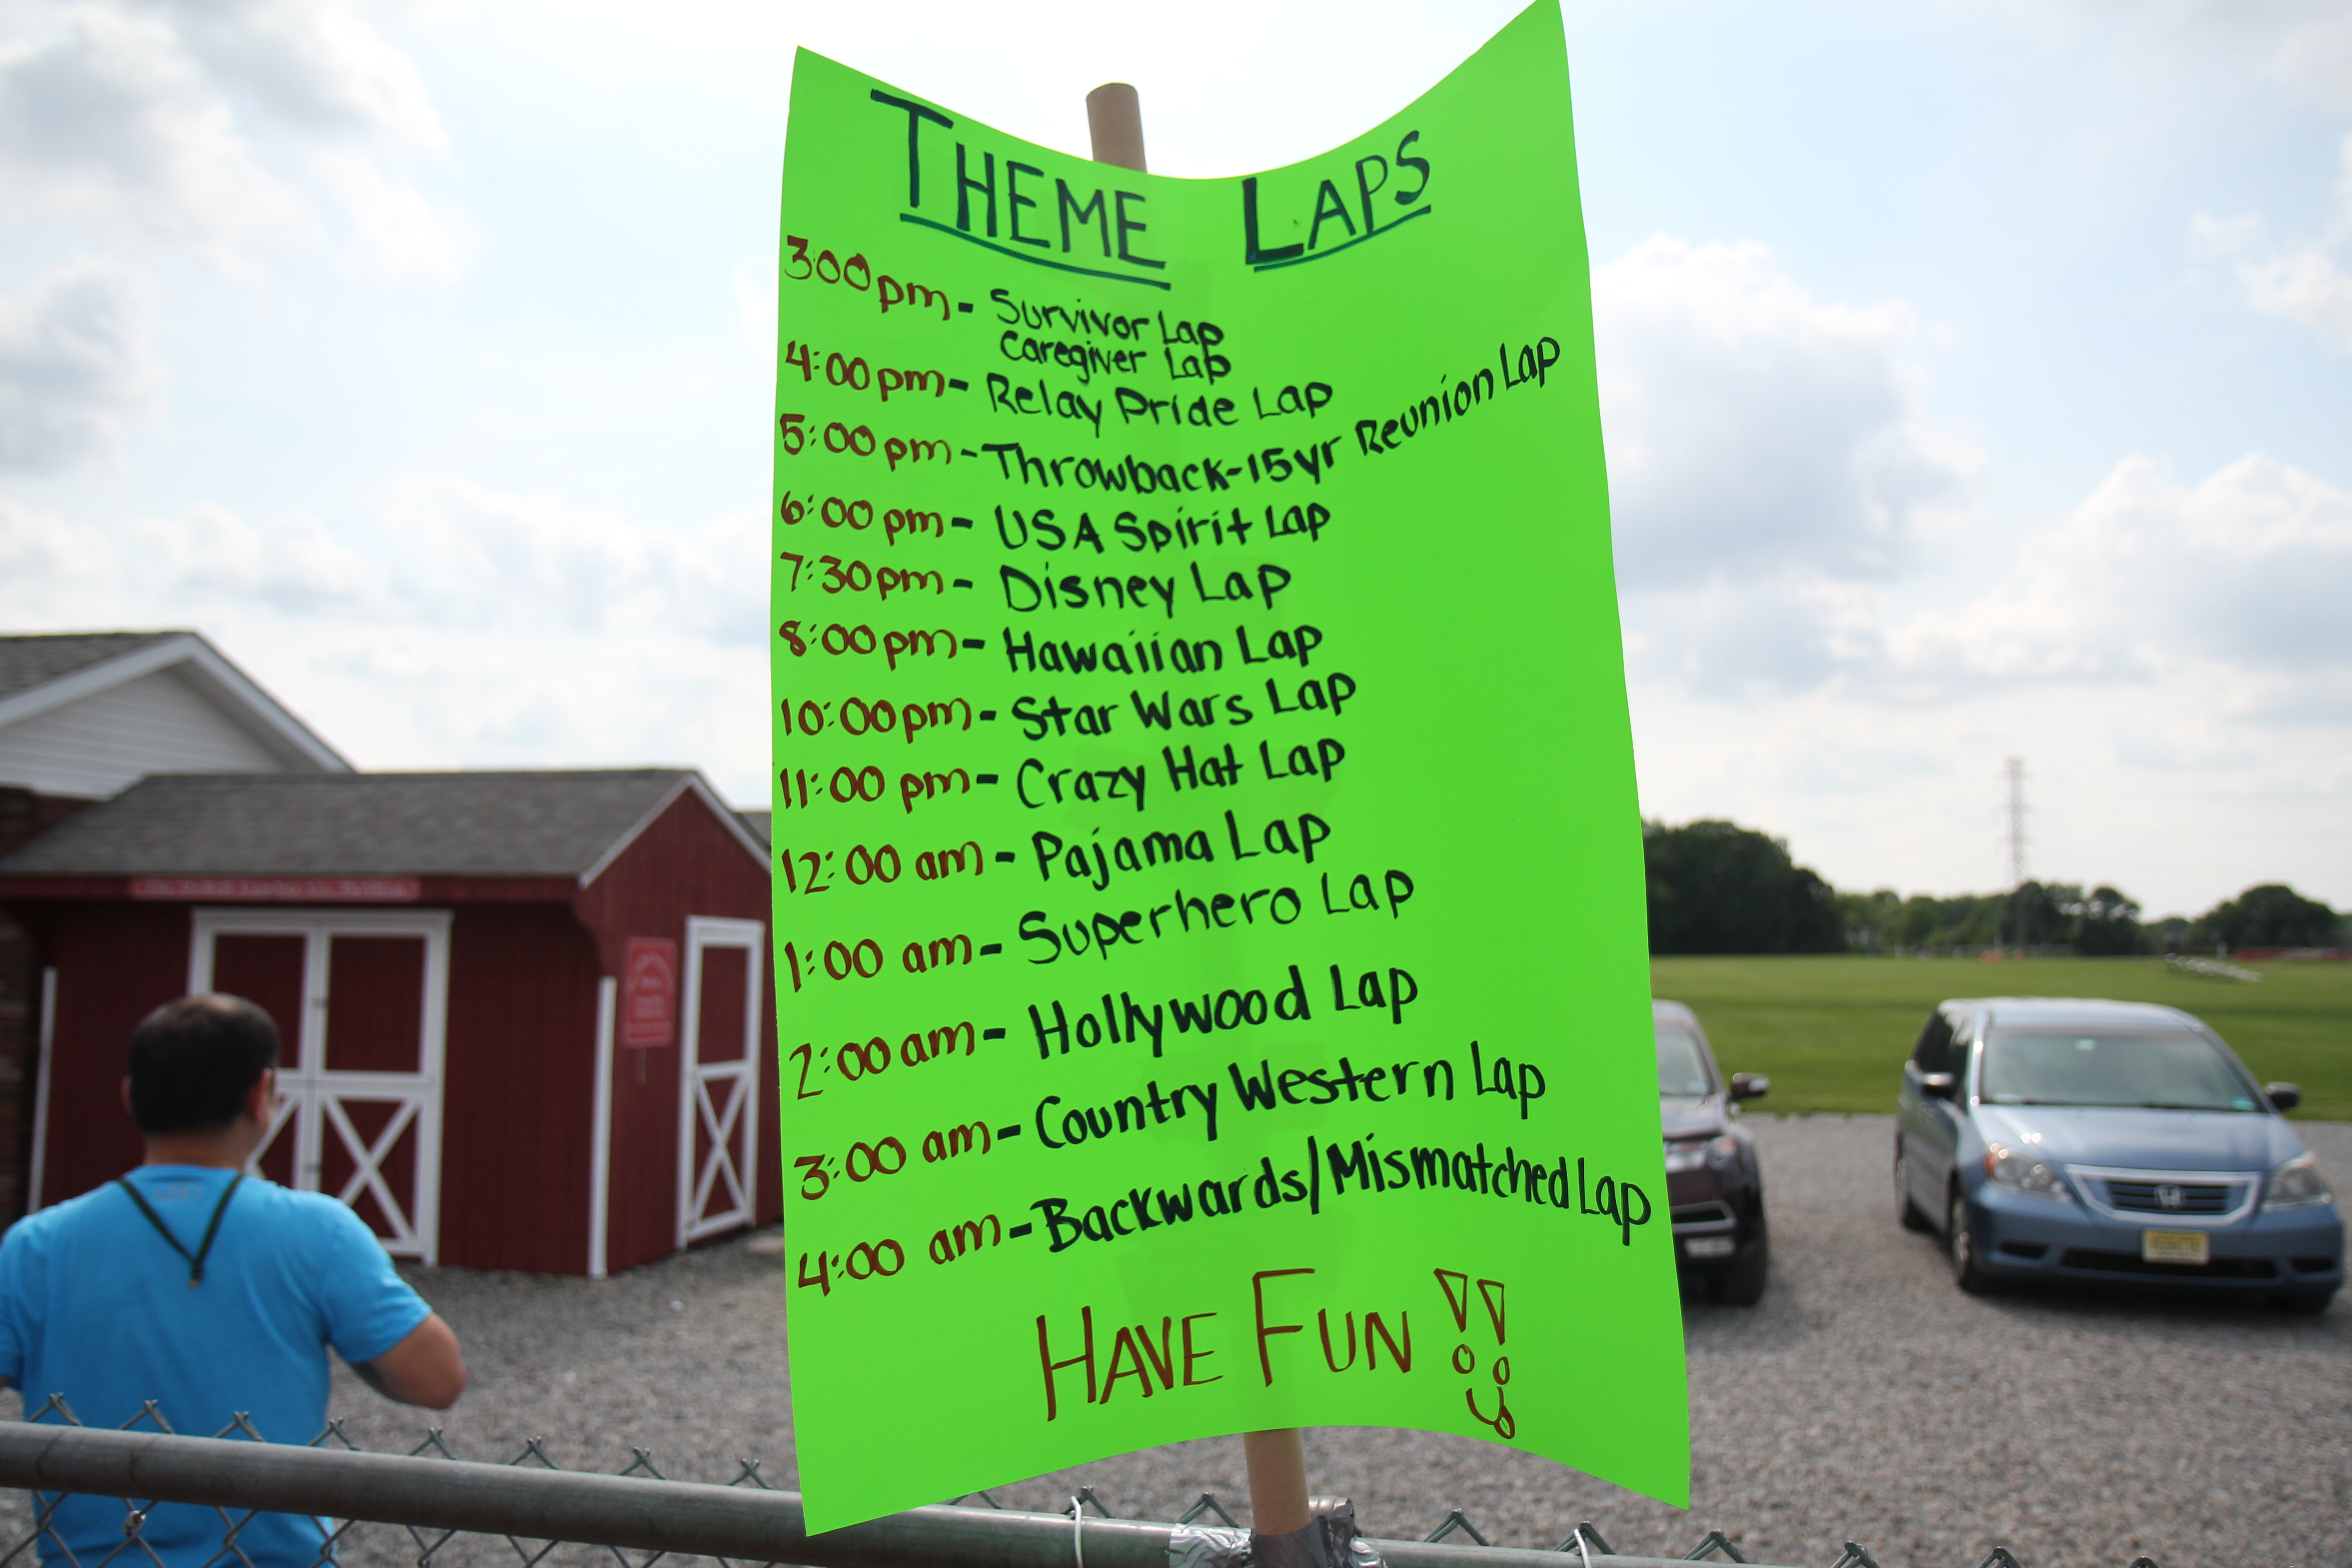 THEME LAPS
3:00pm - Survivor Lap
Caregiver Lap
4:00pm - Relay Pride Lap
5:00 pm - Throwback-15yr Reunion Lap
6:00 pm - USA Spirit Lap
7:30pm - Disney Lap
8:00pm - Hawaiian Lap
10:00pm - Star Wars Lap
11:00 pm - Crazy Hat Lap
12:00 am - Pajama Lap
1:00 am - Superhero Lap
2:00 am - Hollywood Lap
3:00 am - Country Western Lap
4:00 am - Backwards/Mismatched Lap
HAVE FUN !!